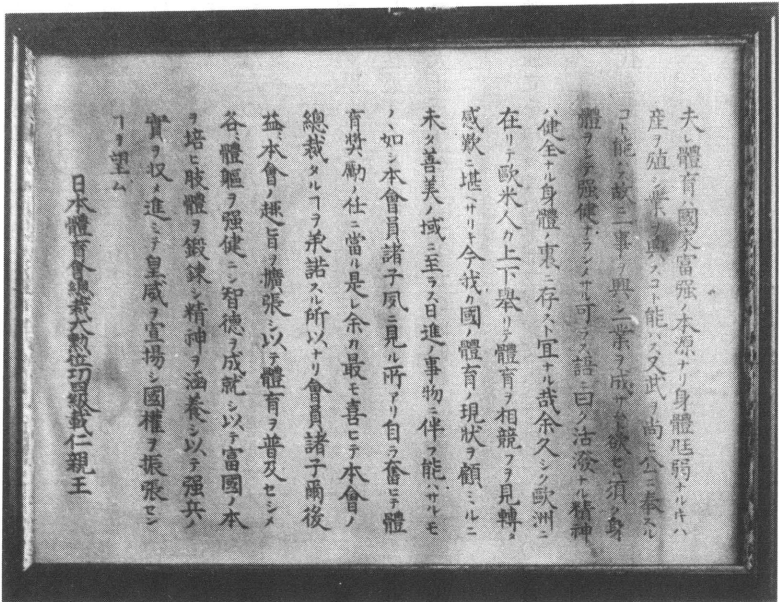 夫レ體育ハ國家富强ノ本源ナリ身體尫弱ナルキハ
産ヲ殖シ業ヲ興スコト能ハス又武ヲ尚ヒ公ニ奉スル
コト能ハス故ニ一事ヲ興シ一業ヲ成サント欲セハ須ク身
體ヲシテ强健ナランメサル可ラス語ニ曰ク活潑ナル精神
ハ健全ナル身體ノ裏ニ存スト宜ナル哉余久シク歐洲ニ
在リテ歐米人カ上下舉リテ體育ヲ相競フヲ見轉タ
感歎ニ堪ヘサリキ今我カ國ノ體育ノ現狀ヲ顧ミルニ
未タ善美ノ域ニ至ラス日進ノ事物ニ伴フ能ハサルモ
ノヽ如シ本會員諸子夙ニ見ル所アリ自ラ奮ヒテ體
育獎勵ノ任ニ當ル是レ余カ最モ喜ヒテ本會ノ
總裁タルヿヲ承諾スル所以ナリ會員諸子爾後
益本會ノ趣旨ヲ擴張シ以テ體育ヲ普及セシメ
各體軀ヲ强健ニシ智德ヲ成就シ以テ富國ノ本
ヲ培ヒ肢體ヲ鍛鍊シ精神ヲ涵養シ以テ强兵ノ
實ヲ收メ進ミテ皇威ヲ宣揚シ國權ヲ振張セン
ヿヲ望ム
日本體育會總裁大勲位功四級載仁親王